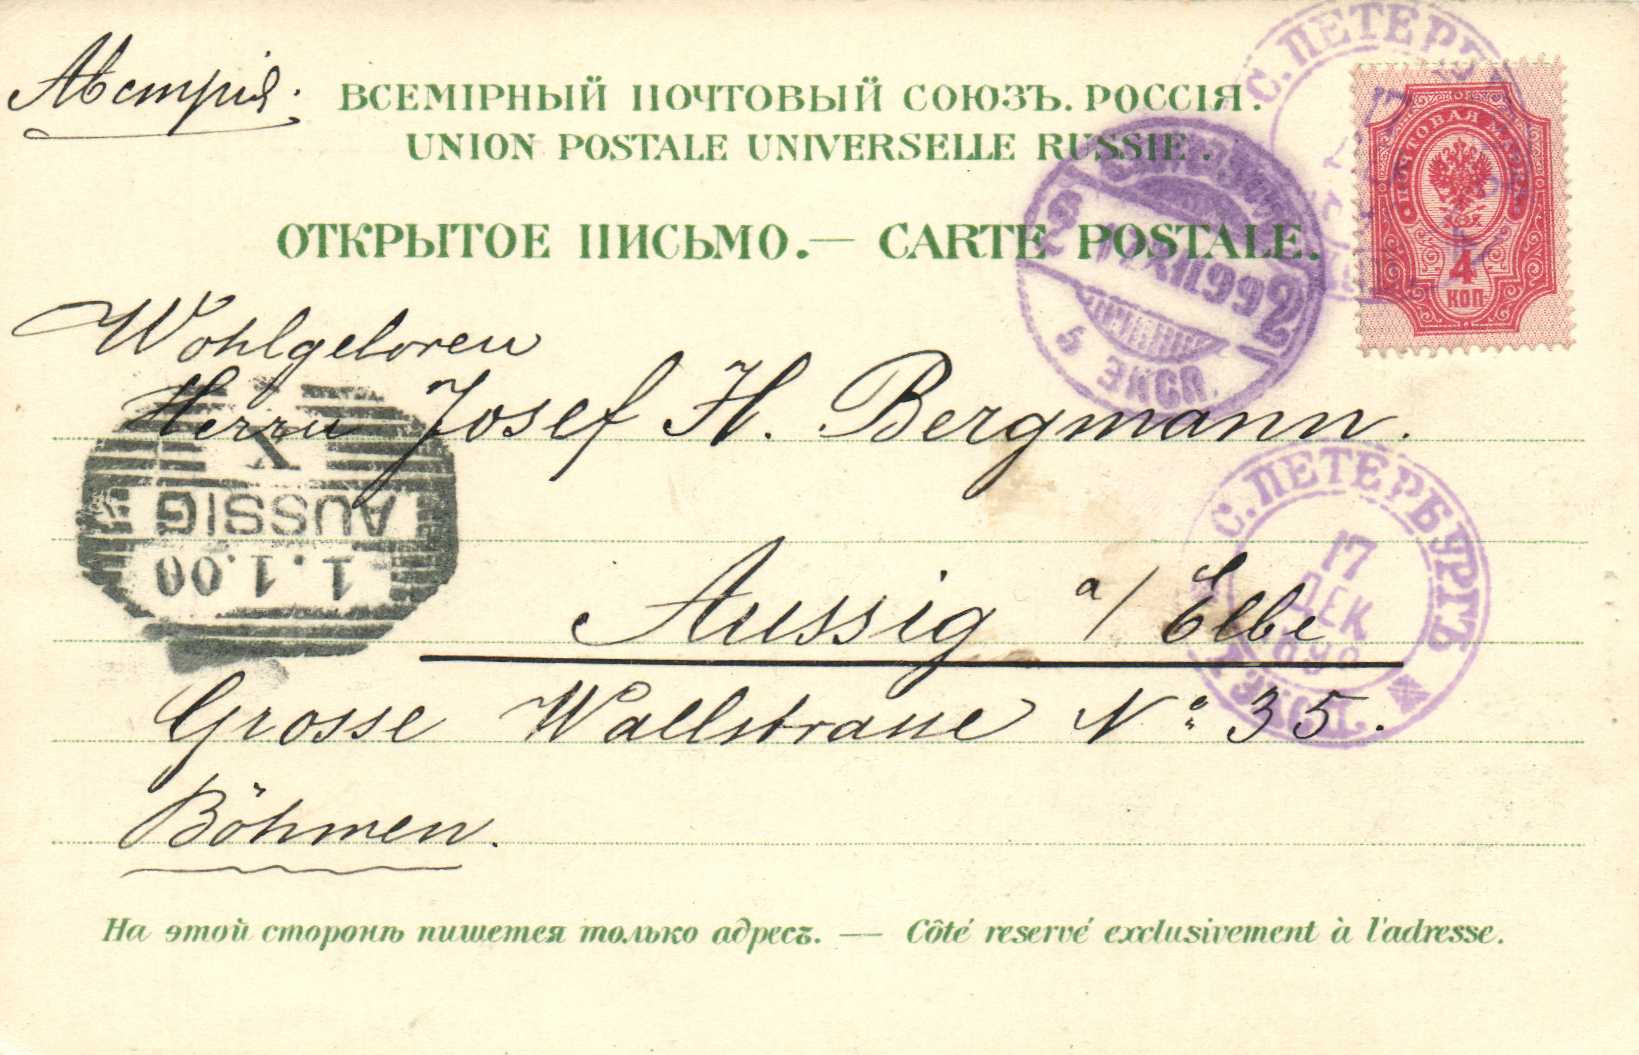 Австрія.
ВСЕМІРНЫЙ ПОЧТОВЫЙ СОЮЗЪ. РОССІЯ.
UNION POSTALE UNIVERSELLE RUSSIE.
ОТКРЫТОЕ ПИСЬМО. — CARTE POSTALE.
С. ПЕТЕРБ
17
ПОЧТОВАЯ МАРКА
4
КОП.
2 XII 99 2
5 ЭКСП.
Wohlgeboren
Herrn Josef H. Bergmann.
X
AUSSIG
1.1.00
С. ПЕТЕРБУРГЪ
17
ДЕК
ЭКСП.
Aussig a/Elbe
Grosse Wallstrasse No 35.
Böhmen.
На этой сторонѣ пишется только адресъ. — Côté reservé exclusivement à l'adresse.